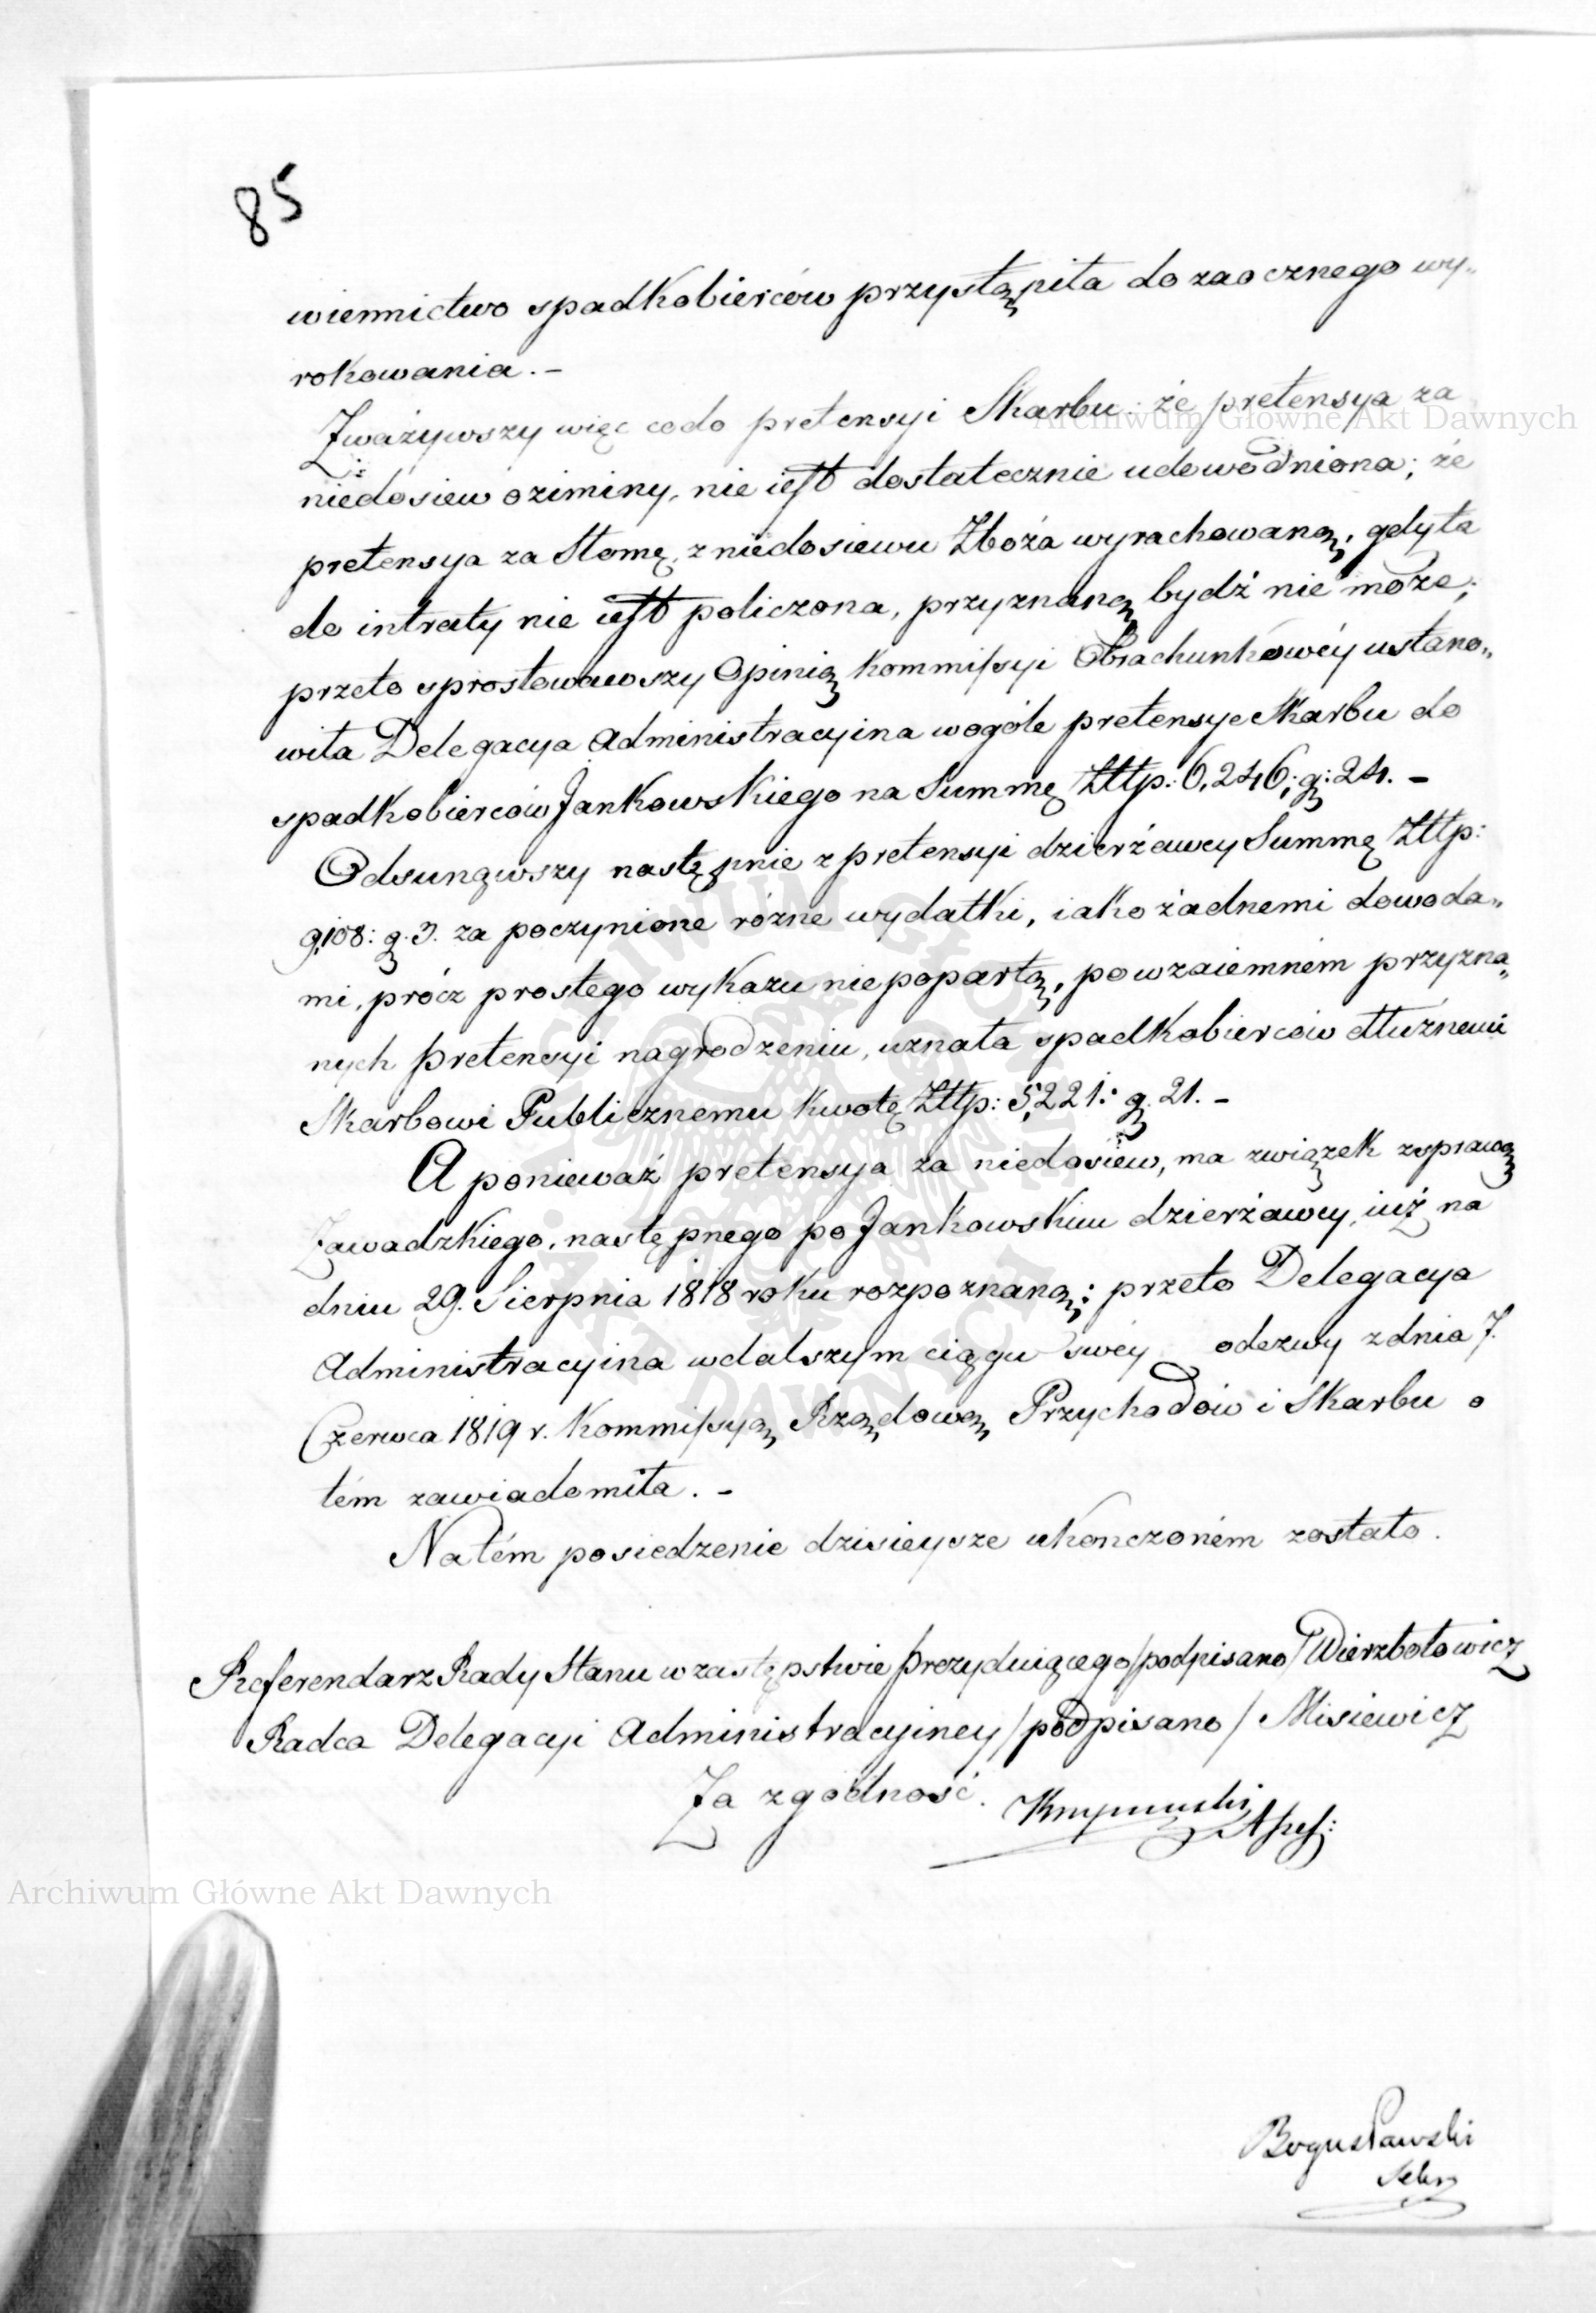 85
wiennictwo spadkobierców przystąpiła do zaocznego wy„
rokowania. –
Zważywszy więc co do pretensyi Skarbu: że pretensya za
Archiwum Główne Akt Dawnych
niedosiew oziminy, nie iest dostatecznie udowodniona; że
pretensya za Słomę, z niedosiewu Zboża wyrachowaną, gdy ta
do intraty nie iest policzona, przyznaną bydź nie może;
przeto sprostowawszy Opinią Kommissyi Obrachunkowéy ustano„
wiła Delegacya Administracyina wogóle pretensye Skarbu do
spadkobierców Jankowskiego na Summę Złtp: 6,246; g: 24. –
Odsunąwszy następnie z pretensyi dzierżawcy Summę Złtp:
9,108: g. 3. za poczynione różne wydatki, iako żadnemi dowoda„
mi, prócz prostego wykazu niepopartą, po wzaiemném przyzna„
nych pretensyi nagrodzeniu, uznała spadkobierców dłużnemi
Skarbowi Publicznemu kwotę Złtp: 5,221: g. 21. –
A ponieważ pretensya za niedosiew, ma związek z sprawą
Zawadzkiego, następnego po Jankowskim dzierżawcy, iuż na
dniu 29. Sierpnia 1818 roku rozpoznaną; przeto Delegacya
Administracyina w dalszym ciągu swéy odezwy z dnia 7.
Czerwca 1819 r. Kommissyą Rządową Przychodów i Skarbu o
tém zawiadomiła. –
Na tém posiedzenie dzisieysze ukonczoném zostało.
Referendarz Rady Stanu w zastępstwie Prezyduiącego /podpisano/ Wierzbołowicz
Radca Delegacyi Administracyiney /podpisano/ Misiewicz
Za zgodność.
Archiwum Główne Akt Dawnych
Bogusławski
Sekr
ARCHIWUM GŁÓWNE AKT DAWNYCH